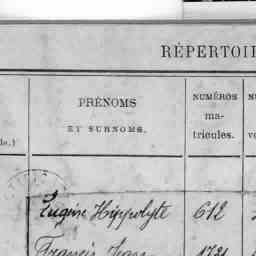 RÉPERTOI
PRÉNOMS
ET SURNOMS.
NUMÉROS
ma-
tricules.
Eugène Hippolyte 612
Francis Jean 1721